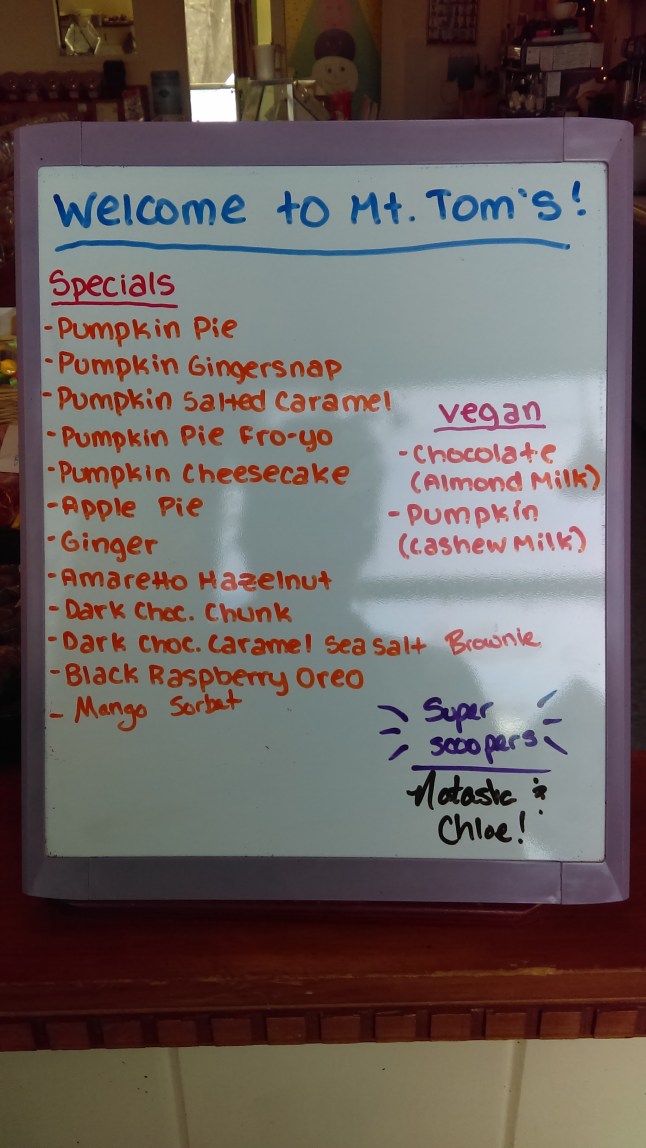 Welcome to Mt. Tom's!
Specials
- Pumpkin Pie
- Pumpkin Gingersnap
- Pumpkin Salted Caramel
- Pumpkin Pie Fro-yo
- Pumpkin Cheesecake
- Apple Pie
- Ginger
- Amaretto Hazelnut
- Dark Choc. Chunk
- Dark Choc. Caramel Sea Salt Brownie
- Black Raspberry Oreo
- Mango Sorbet
Vegan
- Chocolate
(Almond Milk)
- Pumpkin
(Cashew Milk)
Super
scoopers
Natasha &
Chloe!